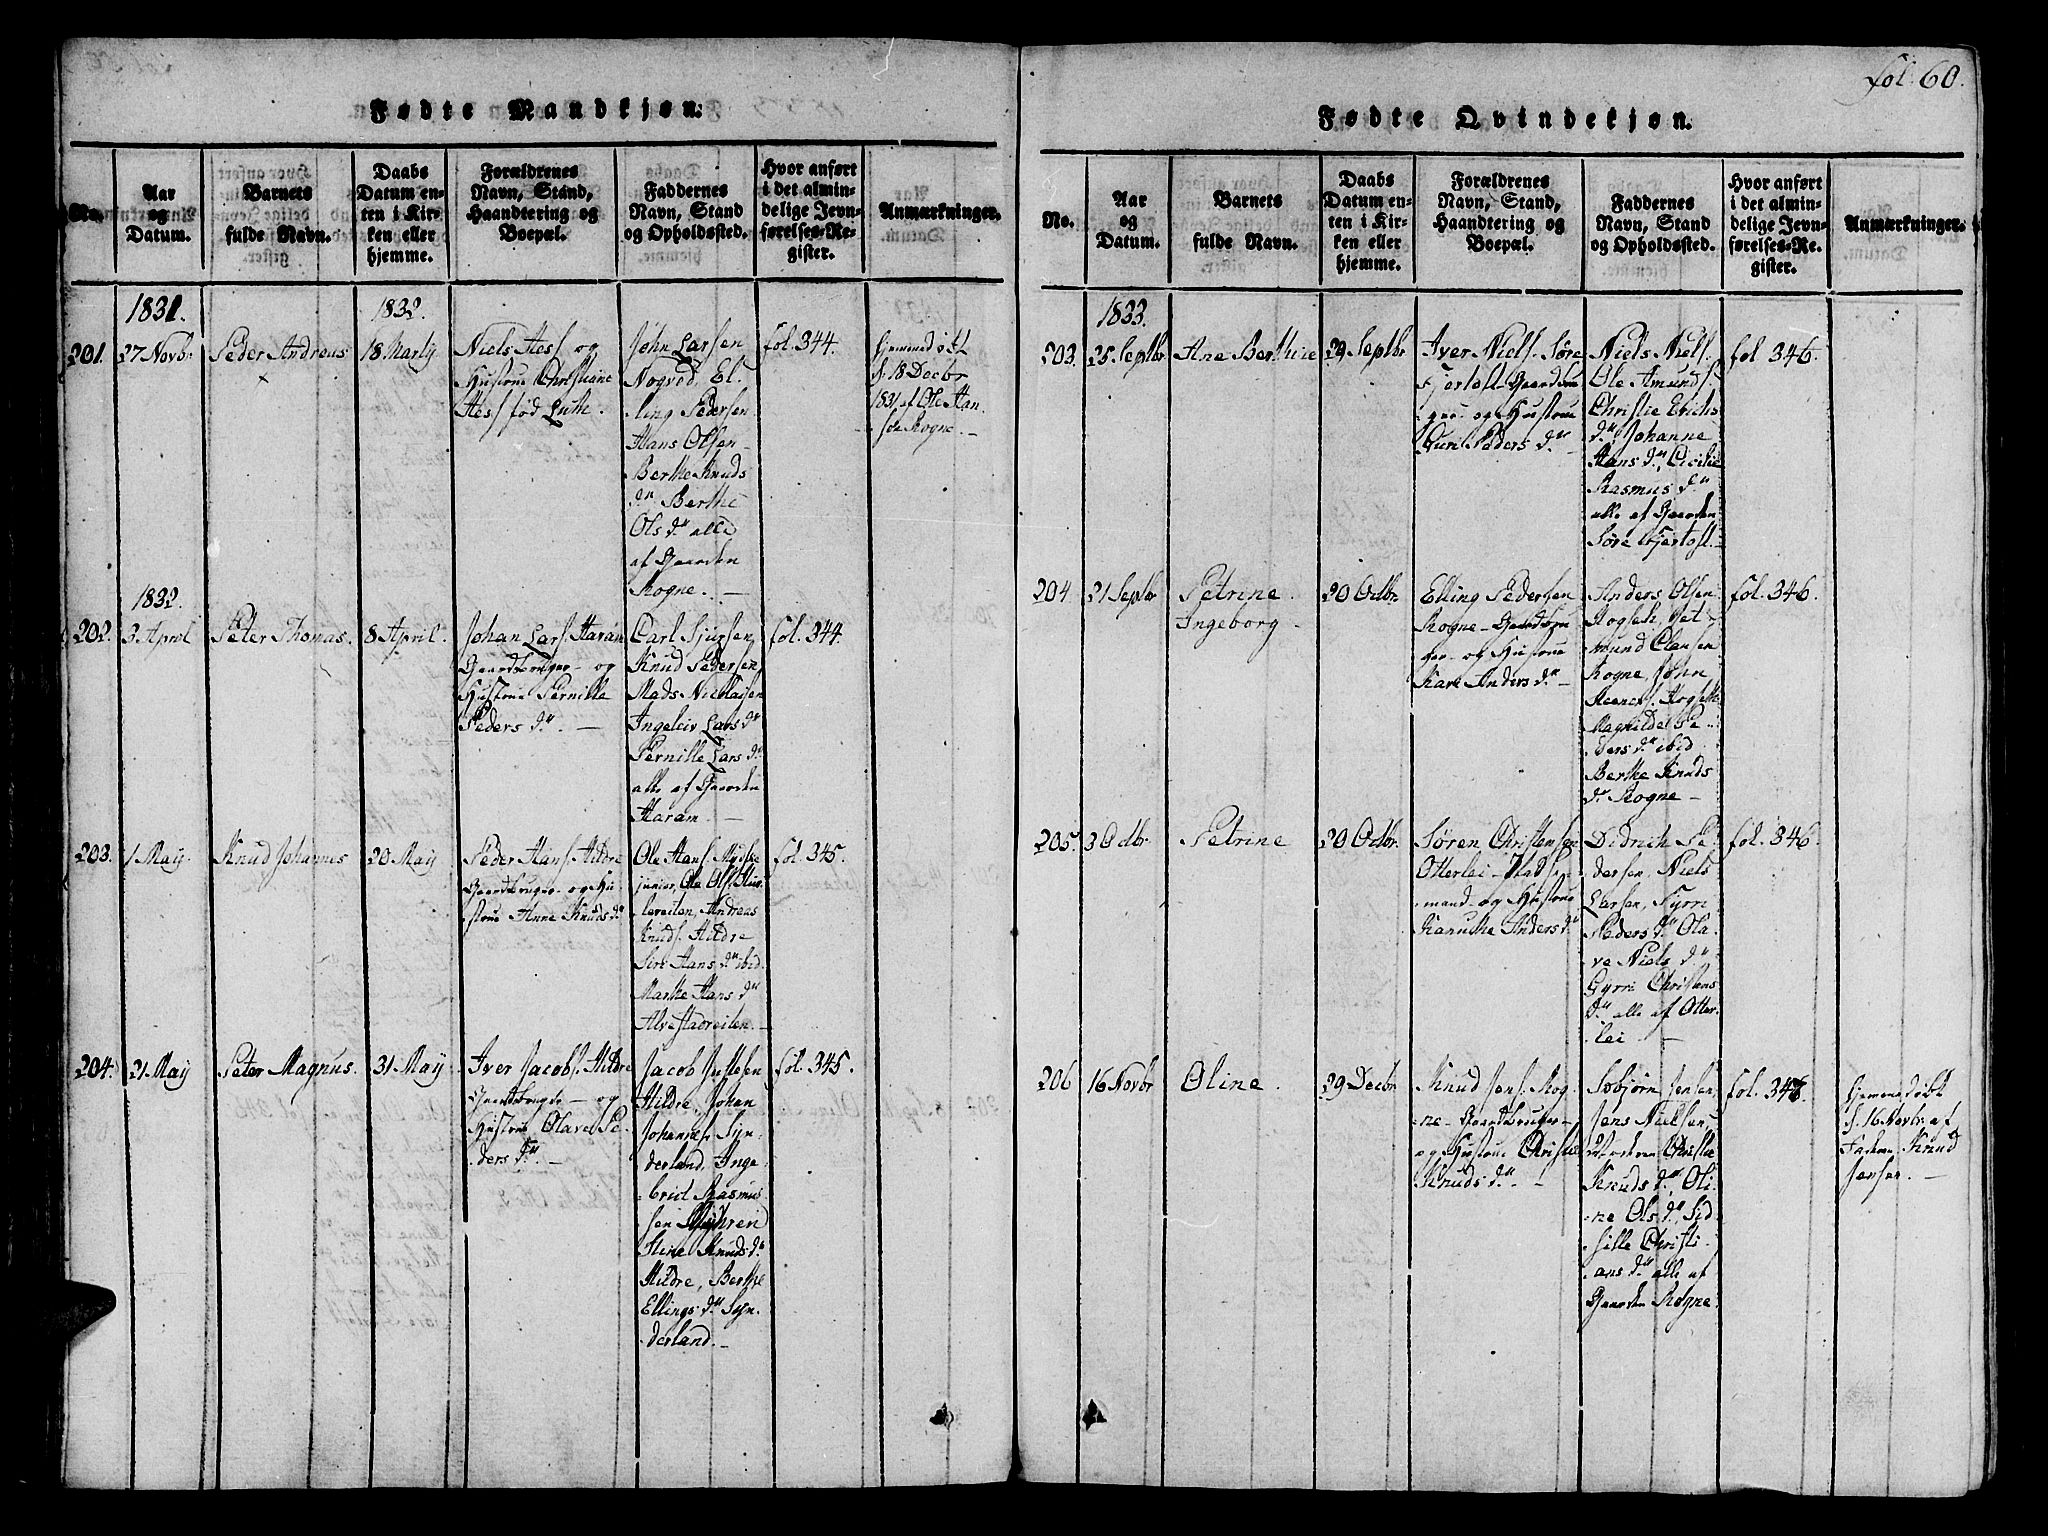 Fødte Mandkjøn.
No.
Aar
og
Datum.
Barnets
fulde Navn.
Daabs
Datum en-
ten i Kir-
ken eller
hjemme.
Forældrenes
Navn, Stand,
Haandtering og
Boepæl.
Faddernes
Navn, Stand
og Opholdssted.
Hvor anført
i det almin-
delige Jevn-
førelses-Re-
gister.
Anmærkninger.
1831.
201.
27 Novbr
Peder Andreas
1832.
18 Marty
Niels Hess og
Hustrue Christiane
Hess fød Luth.
John Larsen
Nogved, El-
ling Pedersen
Hans Olsen
Berthe Knuds
dr Berthe
Ols dr alle
af Gaarden
Rogne. -
fol. 344.
Hjemmedøbt
d. 18 Decbr
1831 af Ole Han-
sen Rogne. -
1832.
202.
3 April
Peter Thomas.
8 April.
Johan Lars. Haram
Gaardbruger - og
Hustrue Pernille
Peders dr. -
Carl Sjursen,
Knud Pedersen,
Mads Nicolaisen
Ingeleiv Lars dr
Pernille Lars dr
alle af Gaarden
Haram. -
fol. 344.
203.
1 May.
Knud Johannes
20 May
Peder Hans. Hildre
Gaardbruger - og Hu-
strue Anne Knuds dr
Ole Hans.
junior, Ole Ols.
Andreas
Knuds. Hildre
Siri Hans dr ibid.
Marthe Hans dr
Alvestadreiten. -
fol. 345.
204.
21 May
Peter Magnus.
31 May
Iver Jacobs. Hildre
Gaardbruger - og
Hustrue Olave Pe-
ders dr. -
Jacob
Hildre, Johan
Johannes. Syn-
derland, Inge-
brict Rasmus-
sen Myhren
Stine Knuds dr
Hildre, Berthe
Ellings dr Syn-
derland. -
fol. 345.
fol. 60.
Fødte Qvindekjøn.
No.
Aar
og
Datum.
Barnets
fulde Navn.
Daabs
Datum en-
ten i Kir-
ken eller
hjemme.
Forældrenes
Navn, Stand,
Haandtering og
Boepæl.
Faddernes
Navn, Stand
og Opholdssted.
Hvor anført
i det almin-
delige Jevn-
førelses-Re-
gister.
Anmærkninger.
1833.
203.
25 Septbr
Ane Berthine
29 Septbr
Iver Niels. Søre
Fjertoft - Gaardbru-
ger og Hustrue
Guri Peders dr -
Niels Niels.
Ole Amunds.
Christie Erichs
dr, Johanne
Hans dr, Cicilie
Rasmus dr
alle af Gaarden
Søre Fjertoft. -
fol 346.
204
21 Septbr
Petrine
Ingeborg.
20 Octbr.
Elling Pedersen
Rogne - Gaardbru-
ger - og Hustrue
Kare Anders dr -
Anders Olsen
Rogseth, Get-
mund Clausen
Rogne, John
Rogseth
Magnilde Pe-
ders dr ibid
Berthe Knuds
dr Rogne -
fol. 346.
205.
3 Octbr.
Petrine
20 Octbr.
Søren Christensen
Otterlei - Hussu-
mand - og Hustrue
Anders dr
Didrich Pe-
dersen, Niels
Larsen, Gyrri
Peders dr Ola-
ve Niels dr
Gyrri Christens
dr alle af Otter-
lei -
fol. 346.
206
16 Novbr
Oline.
29 Decbr.
Knud Jens. Rog-
ne - Gaardbruger -
og Hustrue Christie
Knuds dr. -
Sobjørn Jensen,
Jens Nielsen,
Christie
Knuds dr, Oli-
ne Ols dr, Sid-
sille Christi-
ans dr alle af
Gaarden Rogne.
fol. 346.
Hjemmedøbt
d. 16 Novbr. af
Faderen Knud
Jensen. -